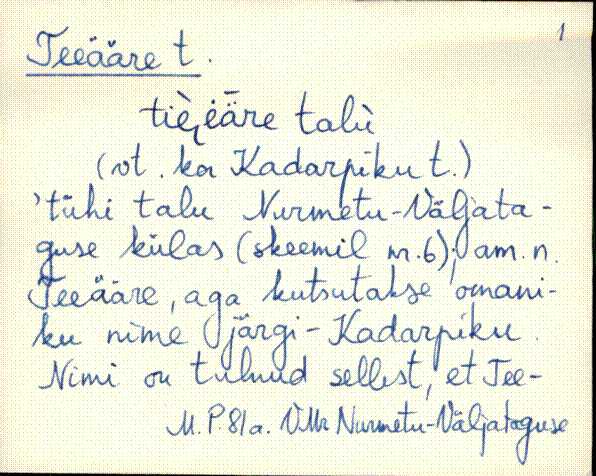 1
Teeääre t.
tiè̯ėäre talù
(vt. ka Kadarpiku t.)
'tühi talu Nurmetu-Väljata-
guse külas (skeemil nr. 6); am. n.
Teeääre, aga kutsutakse omani-
ku nime järgi - Kadarpiku.
Nimi on tulnud sellest, et Tee-
M. P. 81a. VMr Nurmetu-Väljataguse